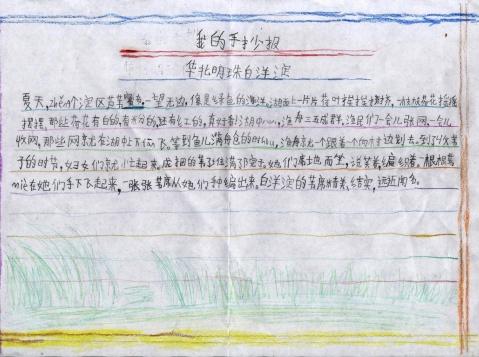 我的手抄报
华北明珠白洋淀
夏天,zhěng个淀区芦苇 一望无边,像是绿色的海洋,湖面上一片片荷叶挨挨挤挤,一 荷花摇摇
摆摆,那些荷花有白的,有粉的,还有红的,真好看!湖中心,渔舟三五成群,渔民们一会儿张网,一会儿
收网,那些网就在湖中上下 飞,等到鱼儿满舟仓的时hou,渔舟就一个跟着一个向水边划去。到了收苇
子的时节,妇女们就忙起来, 捆的苇 堆满了院子,她们席地而坐,说笑着编织着,根根苇
在她们手下飞起来,一张张苇席从她们手中编出来。白洋淀的苇席精美、结实,远近闻名。